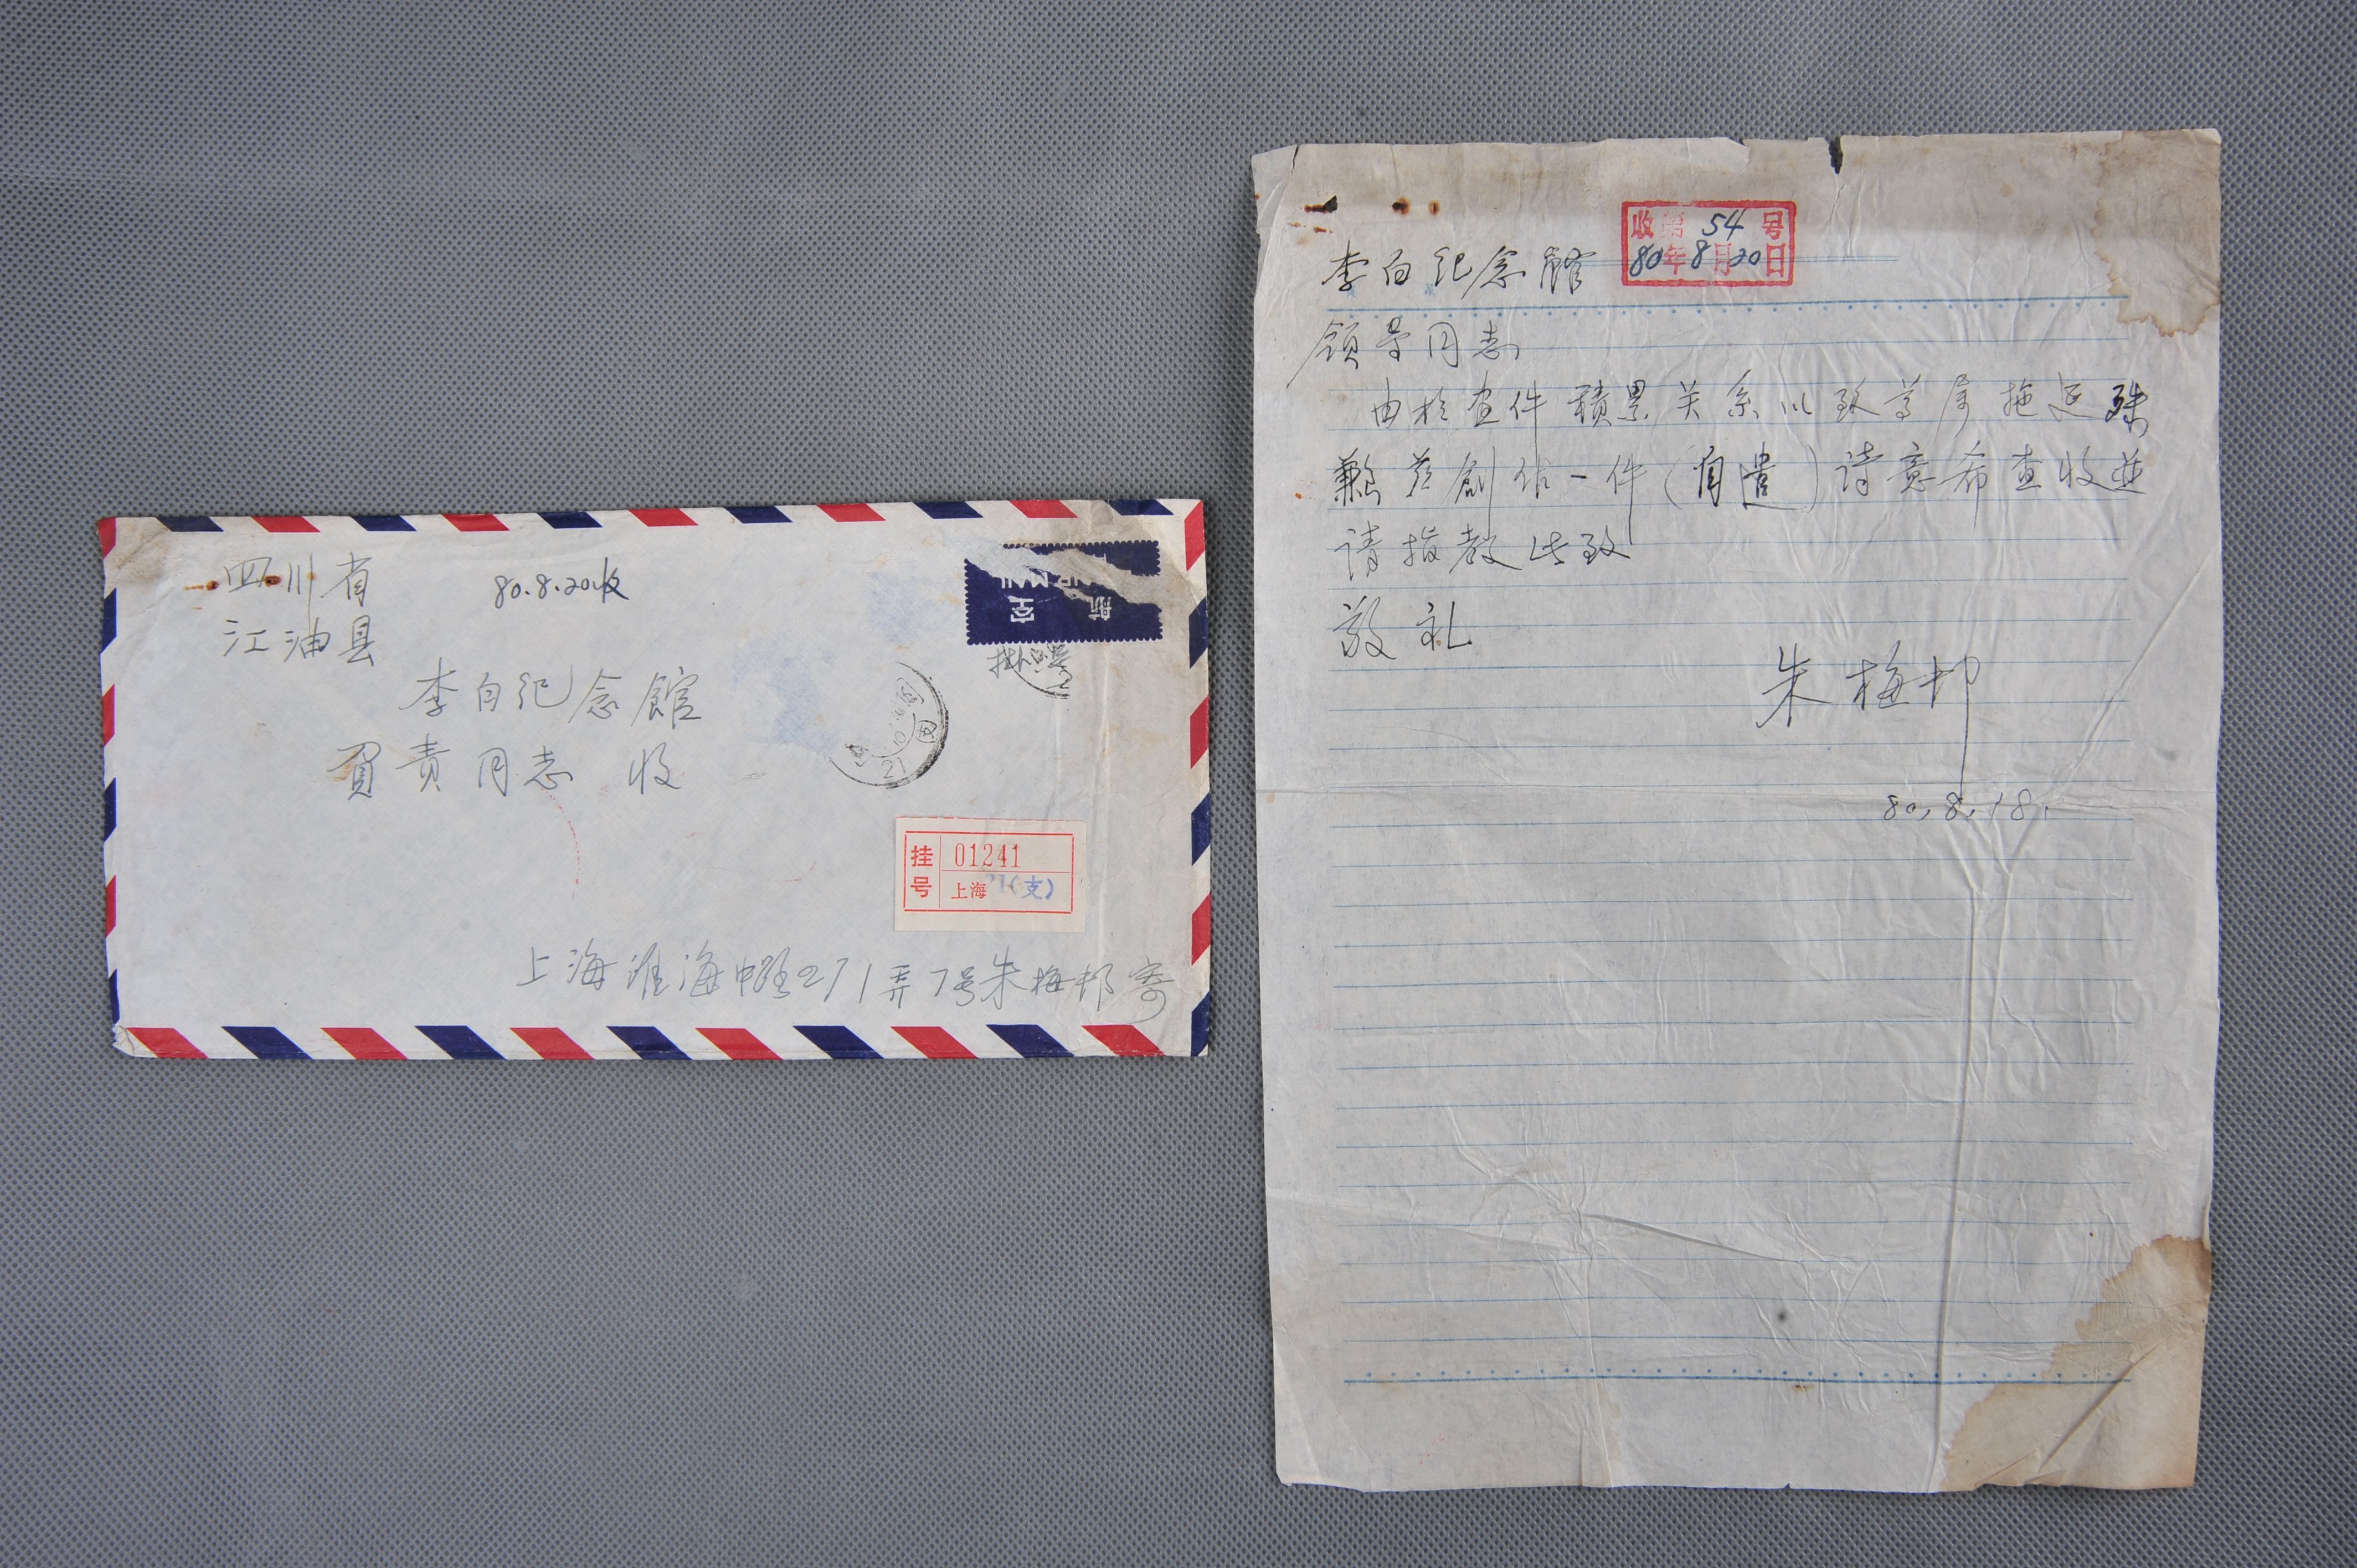 四川省
80.8.20收
江油县
李白纪念館
負责同志 收
航空
挂号
01241
上海 21(支)
上海淮海中路271弄7号朱梅邨寄
收第54号
80年8月20日
李白纪念館
领导同志
由於画件積累关系以致尊属拖延殊
歉兹創作一件(自遣)诗意希查收並
请指教 此致
敬礼
朱梅邨
80.8.18.